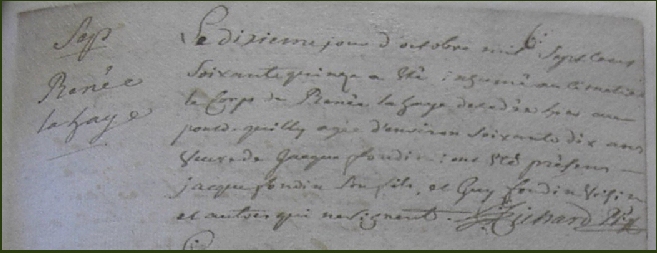 Sep
Renée
la haye
Le dixieme jour d'octobre mil Sept Cens
Soixante quinze a été inhumé au Cimetiere
le Corps de Renée la haye decedée hier au
agée d'environ Soixante dix ans
Veuve de Jacque fondin : ont été présens
jacque fondin Son fils, et Guy fondin
et autres qui ne signent. Richard